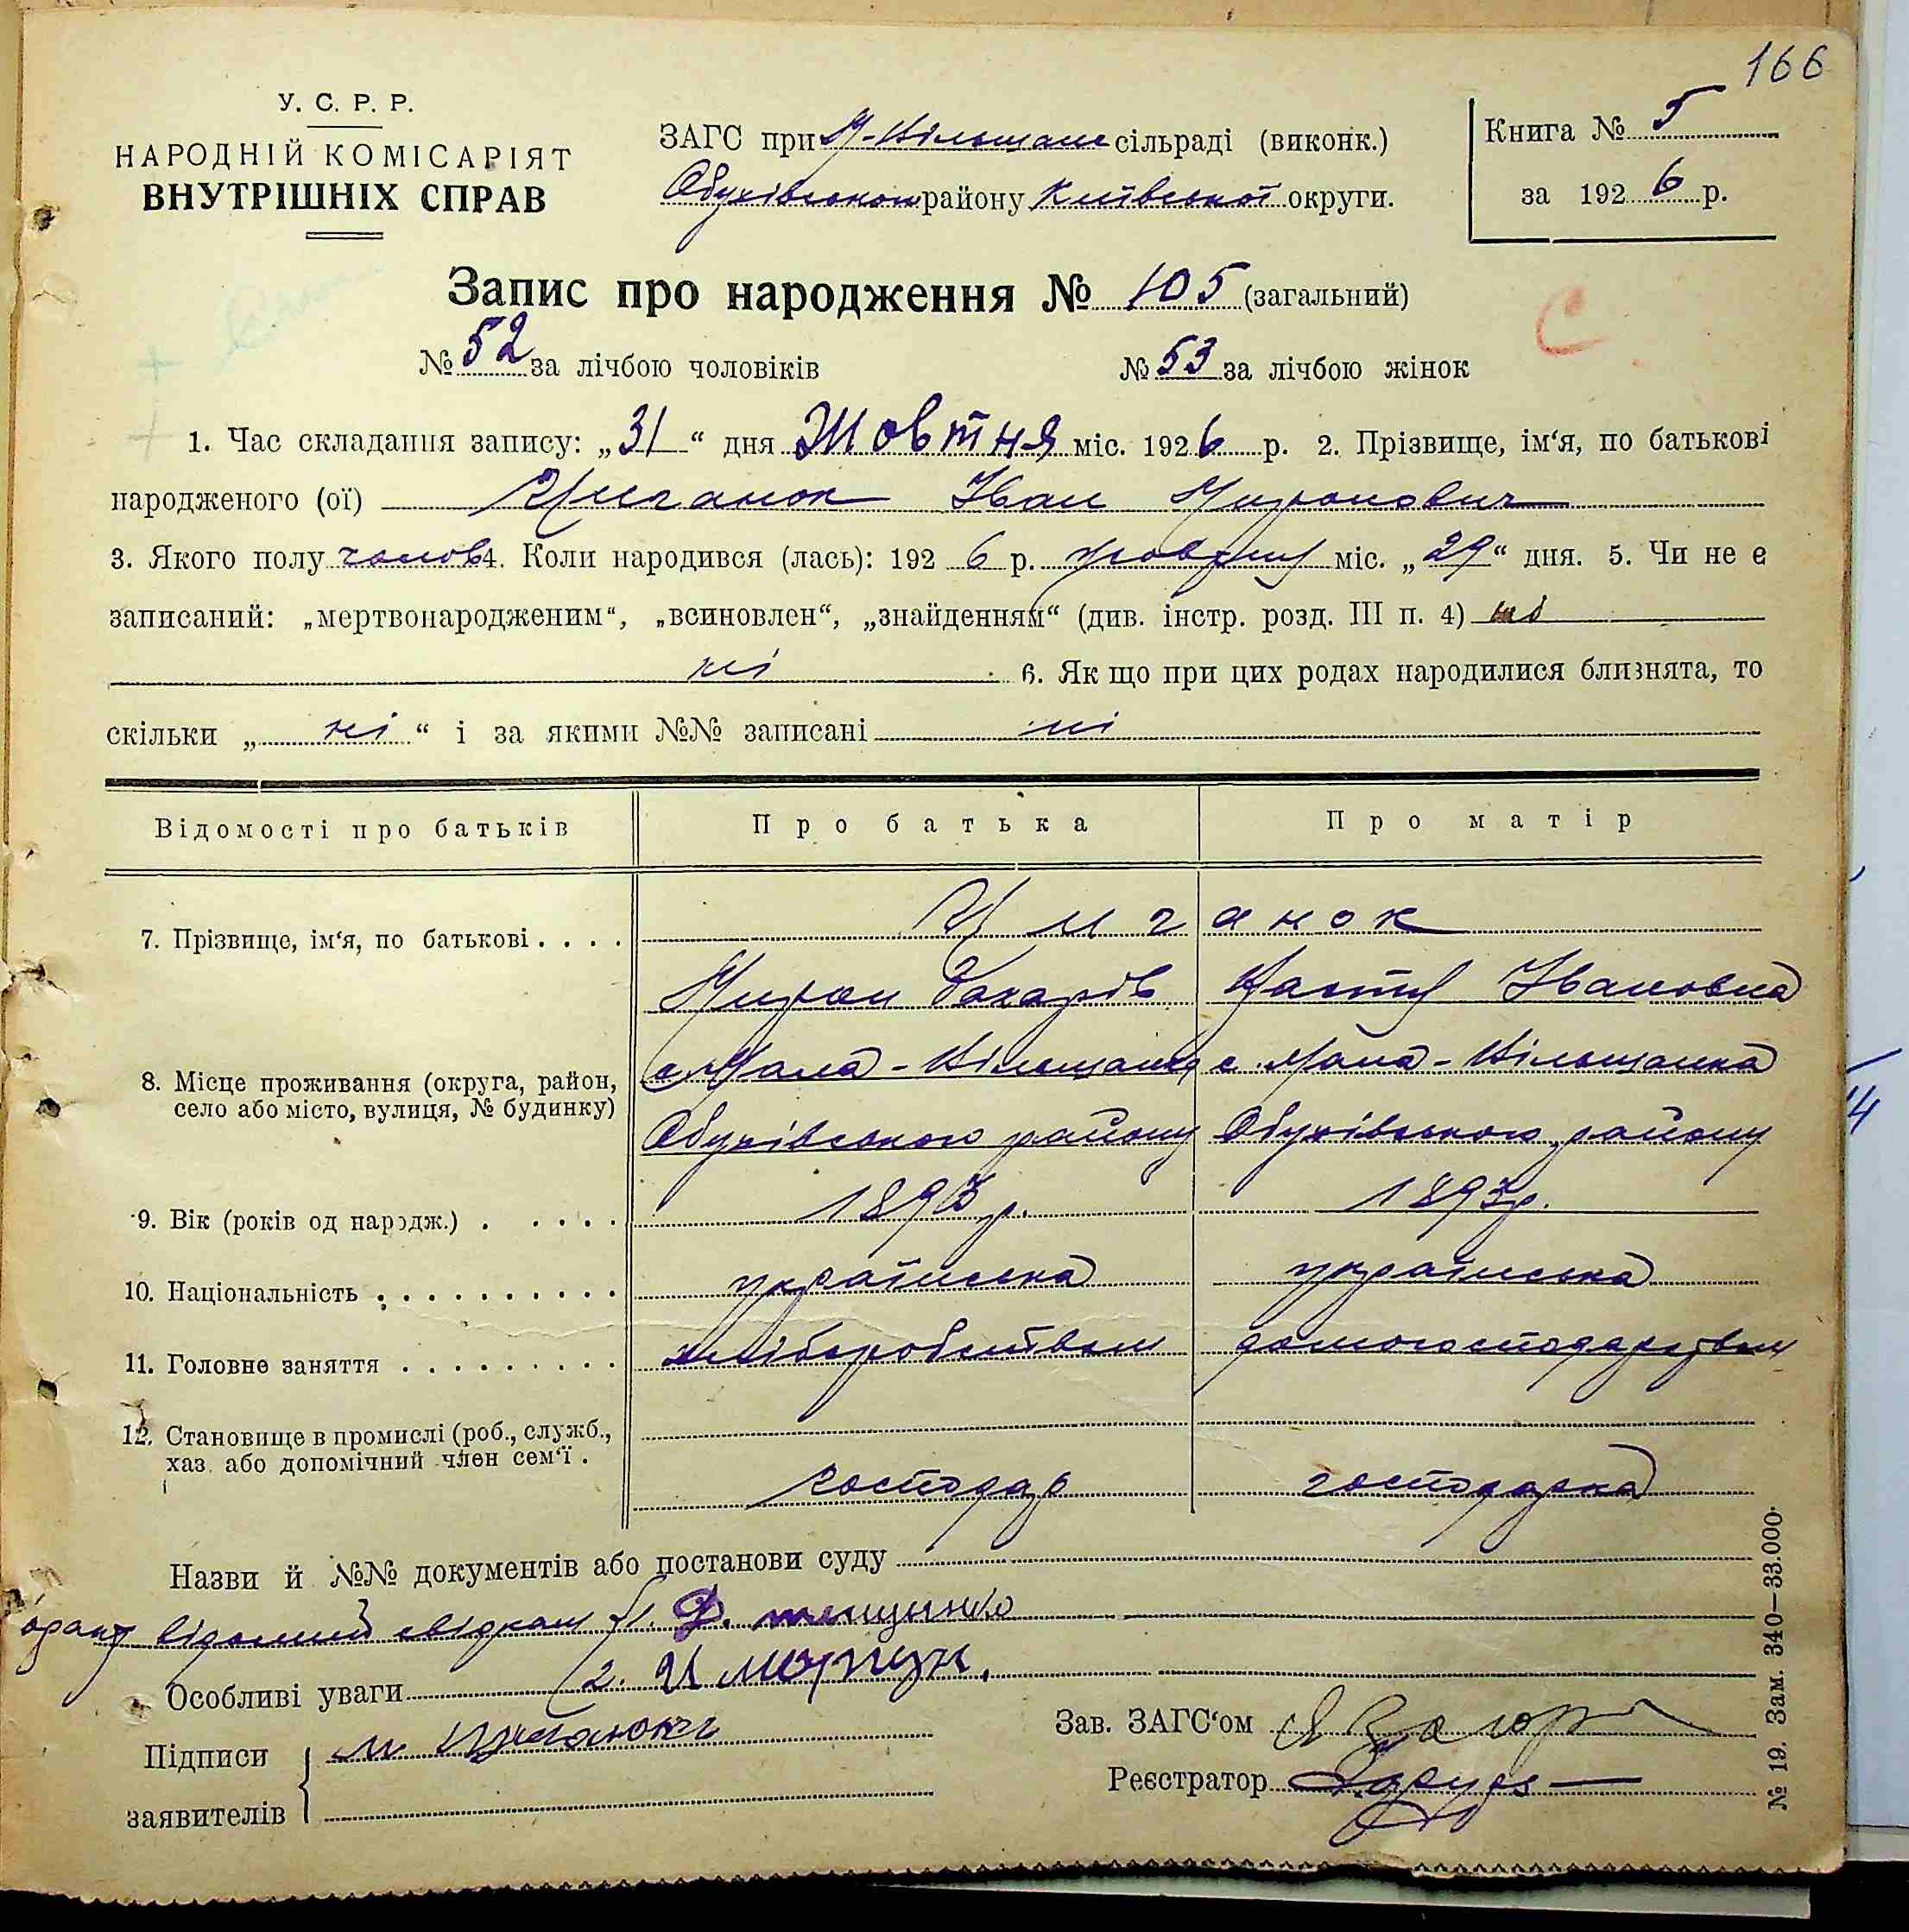 166
У. С. Р. Р.
НАРОДНІЙ КОМІСАРІЯТ
ВНУТРІШНІХ СПРАВ
ЗАГС при М-Вільщанс сільраді (виконк.)
Обухівського району Київської округи.
Книга № 5
за 1926 р.
Запис про народження № 105 (загальний)
С
№ 52 за лічбою чоловіків № 53 за лічбою жінок
1. Час складання запису: „31“ дня Жовтня міс. 1926 р. 2. Прізвище, ім‘я, по батькові
народженого (ої) Циганок Іван Миронович
3. Якого полу чолов 4. Коли народився (лась): 1926 р. жовтня міс. „29“ дня. 5. Чи не є
записаний: „мертвонародженим“, „всиновлен“, „знайденням“ (див. інстр. розд. III п. 4) ні
ні 6. Як що при цих родах народилися близнята, то
скільки „ні“ і за якими №№ записані ні
Відомості про батьків Про батька Про матір
7. Прізвище, ім‘я, по батькові . . . . Циганок
Мирон Захарів Настя Івановна
8. Місце проживання (округа, район,
село або місто, вулиця, № будинку)
с Мала-Вільщанка с. Мала-Вільщанка
Обухівського району Обухівського району
9. Вік (років од народж.) . . . . . 1893 р. 1893 р.
10. Національність . . . . . . . . . . українська українська
11. Головне заняття . . . . . . . . . хліборобством домогосподарством
12. Становище в промислі (роб., служб.,
хаз. або допомічний член сем‘ї .
господар господарка
Назви й №№ документів або постанови суду
відомий свідкам 1. Ф. тещенко
2. И
Особливі уваги
Підписи
заявителів
м Циганокъ
Зав. ЗАГС‘ом
Реєстратор
№ 19. Зам. 340—33.000.